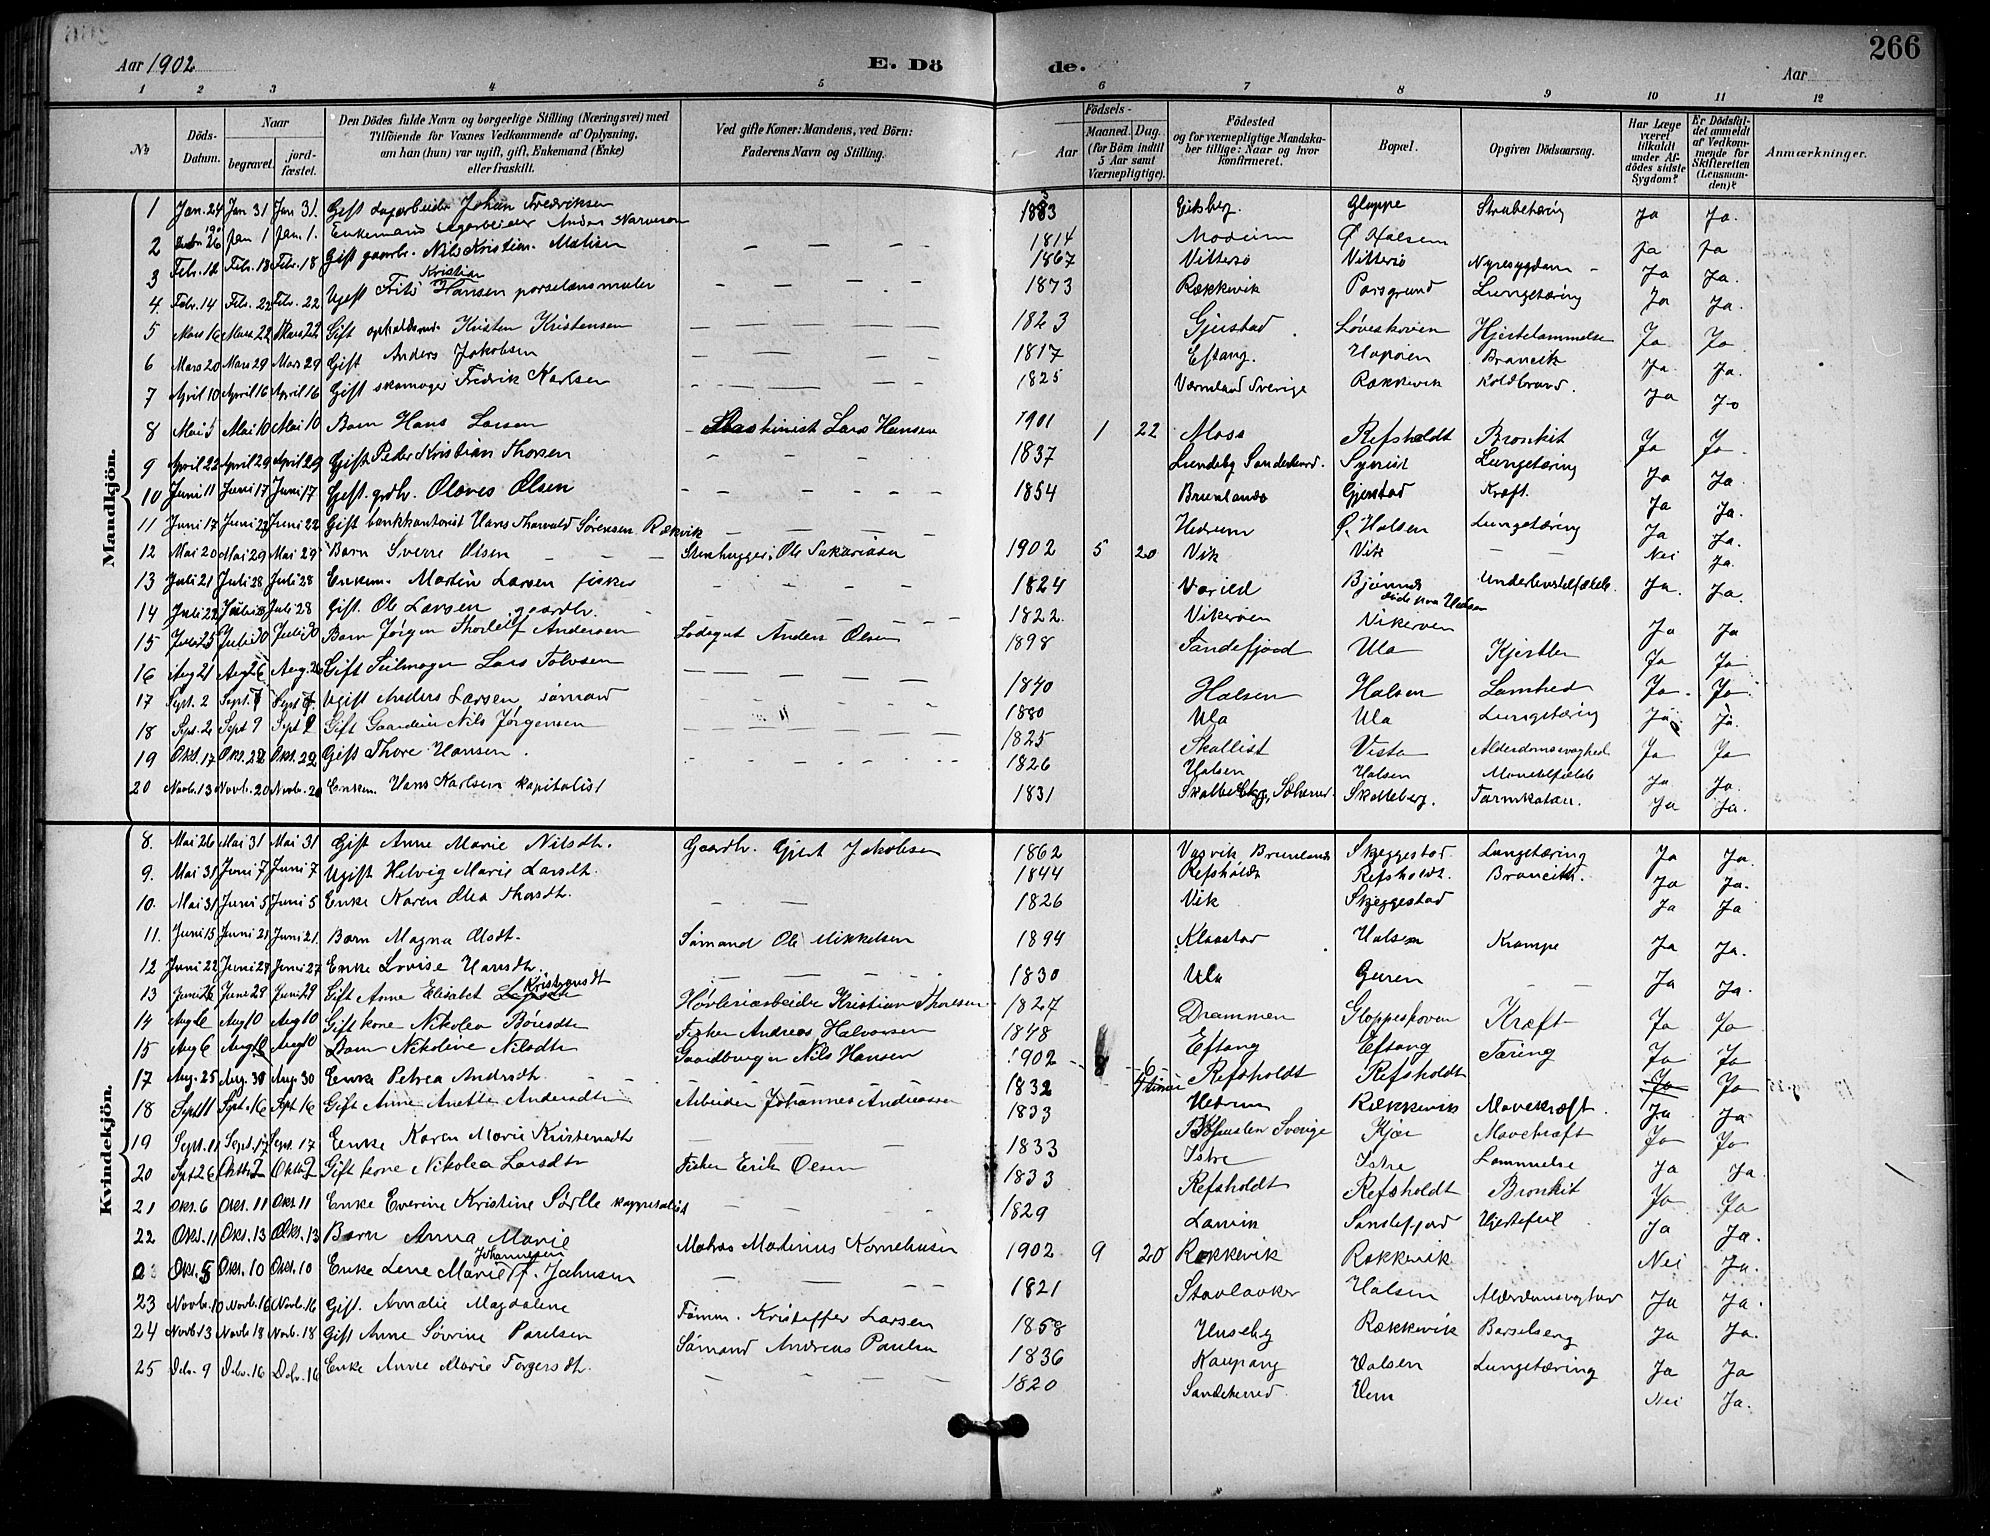 Aar 1902
E. Dö
de.
Aar
266
1 2 3 4 5 6 7 8 9 10 11 12
No.
Döds-Datum.
Naar
begravet.
jord-fæstet.
Den Dödes fulde Navn og borgerlige Stilling (Næringsvei) med
Tilföiende for Voxnes Vedkommende af Oplysning,
om han (hun) var ugift, gift, Enkemand (Enke)
eller fraskilt.
Ved gifte Koner: Mandens, ved Börn:
Faderens Navn og Stilling.
Födsels-
Aar
Maaned. Dag.
(for Börn indtil
5 Aar samt
Værnepligtige).
Födested
og for værnepligtige Mandska-
ber tillige: Naar og hvor
konfirmeret.
Bopæl.
Opgiven Dödsaarsag.
Har Læge
været
tilkaldt
under Af-
dödes sidste
Sygdom?
Er Dödsfal-
det anmeldt
af Vedkom-
mende for
Skifteretten
(Lensman-
den)?
Anmærkninger.
Mandkjön.
1 Jan. 24 Jan 31 Jan 31. Gift dagarbeider Johan Fredriksen 1883 Eidsberg. Gloppe Ja Ja.
2 26 Jan 1 Jan. 1. Enkemand Anders Narvesen 1814 Modum Ø Halsen Ja Ja
3 Febr. 12 Febr. 18 Febr. 18 Gift gaardbr. Nils Kristian Matisen 1867 Vittersø Vittersø Nyresygdom Ja Ja.
4. Febr. 14 Febr. 22 Febr. 22 Ugift Kristian Hansen porselænsmaler 1873 Rækkevik Porsgrund Lungetæring Ja Ja.
5 Mars 16 Mars 22 Mars 22 Gift Kristen Kristensen 1823 Gjerstad Løveskoven Hjertelammelse Ja Ja
6 Mars 20 Mars 29 Mars 29 Gift Anders Jakobsen 1817 Eftang. Ja Ja.
7 April 10 April 16 April 16 Gift skomager Fredrik Karlsen 1825 Værmland Sverige Rækkevik Koldbrand. Ja Ja
8 Mai 5 Mai 10 Mai 10 Barn Hans Larsen Maskinist Lars Hansen 1901 1 22 Moss Refsholdt Bronkit Ja Ja
9 April 22 April 29 April 29 Gift Peder Kristian Thorsen 1837 Lundeby Sandeherred. Lungetæring Ja Ja.
10 Juni 11 Juni 17 Juni 17 Gift. grdbr. Olaves Olsen 1854 Brunlanes Gjerstad Kræft. Ja Ja.
11 Juni 17 Juni 22 Juni 22 Gift bankkontorist Hans Thorvald Sørensen Rækvik Hedrum Ø. Halsen Lungetæring Ja Ja.
12 Mai 20 Mai 29 Mai 29 Barn Sverre Olsen Stenhugger Ole Sakariasen 1902 5 20 Vik Vik Nei Ja.
13 Juli 21 Juli 28 Juli 28 Enkem. Martin Larsen fisker 1824 Varild Bjønnes døde paa Halsen Ja. Ja.
14 Juli 22 Juli 28 Juli 28 Gift. Ole Larsen gaardbr. 1822. Vikerøen Vikerøen Ja Ja
15 Juli 25 Juli 30 Juli 30 Barn Jörgen Thorleif Andersen Lodsgut Anders Olsen 1898 Sandefjord Ula Ja Ja
16 Aug 21 Aug 26 Aug. 26 Gift Seilmager Lars Tolvsen 1840 Halsen Halsen Lamhed Ja Ja
17 Sept. 2 Sept. 7 Sept 7 Ugift Anders Larsen sømand 1880 Ula Ula Lungetæring Ja Ja.
18 Sept. 2 Sept 9 Sept 9 Gift Gaardeier Nils Jørgensen 1825 Skallist Vesta Alderdomssvaghed Ja Ja
19 Okt. 17 Okt. 22 Okt. 22 Gift Thore Hansen. 1826 Halsen Halsen Ja Ja.
20 Novb. 13 Novb. 20 Novb. 20 Enkem. Hans Karlsen kapitalist 1831 Skalleberg. Tarmkatar. Ja Ja.
Kvindekjön.
8. Mai 26 Mai 31 Mai 31 Gift Anne Marie Nilsdtr. Gaardbr. Gjert Jakobsen 1862 Brunlanes Skjeggestad. Lungetæring Ja Ja.
9. Mai 31 Juni 7 Juni 7 Ugift Helvig Marie Larsdt. 1844 Refsholdt Refsholdt. Ja Ja.
10. Mai 31 Juni 5 Juni 5 Enke Karen Olea Thorsdt. 1826 Vik Skjeggestad Ja Ja
11. Juni 15 Juni 21 Juni 21. Barn Magna Olsdt. Sømand Ole Mikkelsen 1894 Klaastad Halsen Krampe Ja Ja.
12 Juni 22 Juni 27 Juni 27 Enke Lovise Hansdtr. 1830 Ula Guren Ja Ja.
13 Juni 26 Juni 28 Juni 29 Gift Anne Elisabet Kristiansdt Høvleriarbeider Kristian Thoresen 1827 Drammen Gloppeskoven Kræft Ja Ja
14 Aug 6 Aug 10 Aug 10 Gift kone Nikolea Børesdtr Fisker Andreas Halvorsen 1848 Eftang Eftang Tæring Ja Ja
15 Aug 6 Aug 10 Aug 10 Barn Nikoline Nilsdtr Gaardbruger Nils Hansen 1902 8 6 Refsholdt Refsholdt Ja Ja
17 Aug. 25 Aug. 30 Aug. 30 Enke Petrea Andrsdtr. 1832 Hedrum Rækkevik Mavekræft. Ja Ja
18 Sept 11 Sept. 16 Sept 16 Gift Anne Anette Andersdtr Arbeider Johannes Andreassen 1833 Sverige Kjær Mavekræft Ja Ja
19 Sept. 11 Sept. 17 Sept. 17 Enke Karen Marie Kristensdtr 1833 Istre Istre Lammelse Ja Ja.
20 Sept 26 Oktb 2 Oktb 2 Gift kone Nikolea Larsdtr Fisker Erik Olsen 1833 Refsholdt Refsholdt Bronkit Ja Ja
21 Okt. 6 Okt. 11 Okt 11 Enke Everine Kristine Sørlle 1829 Larvik Sandefjord Hjertefeil Ja Ja.
22 Okt. 11 Okt. 13 Okt. 13 Barn Anna Marie Matros Matinius Kornelius 1902 9 20 Rækkevik Rækkevik Nei Ja.
Okt. 5 Okt. 10 Okt. 10 Enke Lene Marie Johannesen f. 1821 Stavlaaker Halsen Ja Ja.
23 Novb. 10 Novb. 16 Novb. 16 Gift. Amalie Magdalene Tömm. Kristoffer Larsen 1858 Huseby Rækkevik Barselseng Ja Ja.
24 Novb 13 Novb 18 Novb. 18 Gift Anne Severine Paulsen Sømand Andreas Paulsen 1836 Kaupang Halsen Lungetæring Ja Ja
25 Debr. 9 Debr. 16 Debr. 16 Enke Anne Marie Torgersdtr. 1820 Sandeherred Vem Nei Ja.